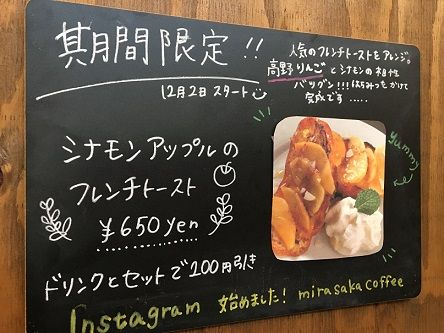 期間限定!!
12月2日 スタート
人気のフレンチトーストをアレンジ。
高野りんごとシナモンの相性
バツグン!!! はちみつかけて
完成です.....
yummy
シナモンアップルの
フレンチトースト
¥650yen
ドリンクとセットで200円引き
Instagram 始めました! mirasaka coffee